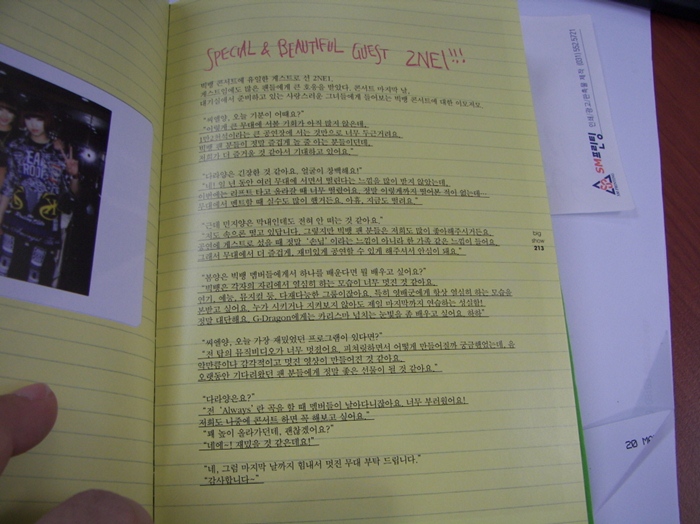 SPECIAL & BEAUTIFUL GUEST 2NE1!!!
빅뱅 콘서트에 유일한 게스트로 선 2NE1.
게스트임에도 많은 팬들에게 큰 호응을 받았다. 콘서트 마지막 날,
대기실에서 준비하고 있는 사랑스러운 그녀들에게 들어보는 빅뱅 콘서트에 대한 이모저모.
"씨엘양, 오늘 기분이 어때요?"
"이렇게 큰 무대에 서볼 기회가 아직 많지 않은데,
1만 2천석이라는 큰 공연장에 서는 것만으로 너무 두근거려요.
빅뱅 팬 분들이 정말 즐겁게 놀 줄 아는 분들이던데,
저희가 더 즐거울 것 같아서 기대하고 있어요."
"다라양은 긴장한 것 같아요. 얼굴이 창백해요!"
"네! 일 년 동안 여러 무대에 서면서 떨린다는 느낌을 많이 받지 않았는데,
이번에는 리프트 타고 올라갈 때 너무 떨렸어요. 정말 이렇게까지 떨어본 적이 없는데…
무대에서 멘트할 때 실수도 많이 했거든요. 아휴, 지금도 떨려요."
"근데 민지양은 막내인데도 전혀 안 떠는 것 같아요."
"저도 속으론 떨고 있답니다. 그렇지만 빅뱅 팬 분들은 저희도 많이 좋아해주시거든요.
공연에 게스트로 섰을 때 정말 '손님' 이라는 느낌이 아니라 한 가족 같은 느낌이 들어요.
그래서 무대에서 더 즐겁게, 재미있게 공연할 수 있게 해주셔서 안심이 돼요."
"봄양은 빅뱅 멤버들에게서 하나를 배운다면 뭘 배우고 싶어요?"
"빅뱅은 각자의 자리에서 열심히 하는 모습이 너무 멋진 것 같아요.
연기, 예능, 뮤지컬 등, 다재다능한 그룹이잖아요. 특히 영배군에게 항상 열심히 하는 모습을
본받고 싶어요. 누가 시키거나 지켜보지 않아도 제일 마지막까지 연습하는 성실함!
정말 대단해요. G-Dragon에게는 카리스마 넘치는 눈빛을 좀 배우고 싶어요. 하하"
"씨엘양, 오늘 가장 재밌었던 프로그램이 있다면?"
"전 탑의 뮤직비디오가 너무 멋졌어요. 피처링하면서 어떻게 만들어질까 궁금했었는데, 음
악만큼이나 감각적이고 멋진 영상이 만들어진 것 같아요.
오랫동안 기다려왔던 팬 분들에게 정말 좋은 선물이 된 것 같아요."
"다라양은요?"
"전 'Always' 란 곡을 할 때 멤버들이 날아다니잖아요. 너무 부러웠어요!
저희도 나중에 콘서트 하면 꼭 해보고 싶어요."
"꽤 높이 올라가던데, 괜찮겠어요?"
"네에~! 재밌을 것 같은데요!"
"네, 그럼 마지막 날까지 힘내서 멋진 무대 부탁 드립니다."
"감사합니다~"
big
show
213